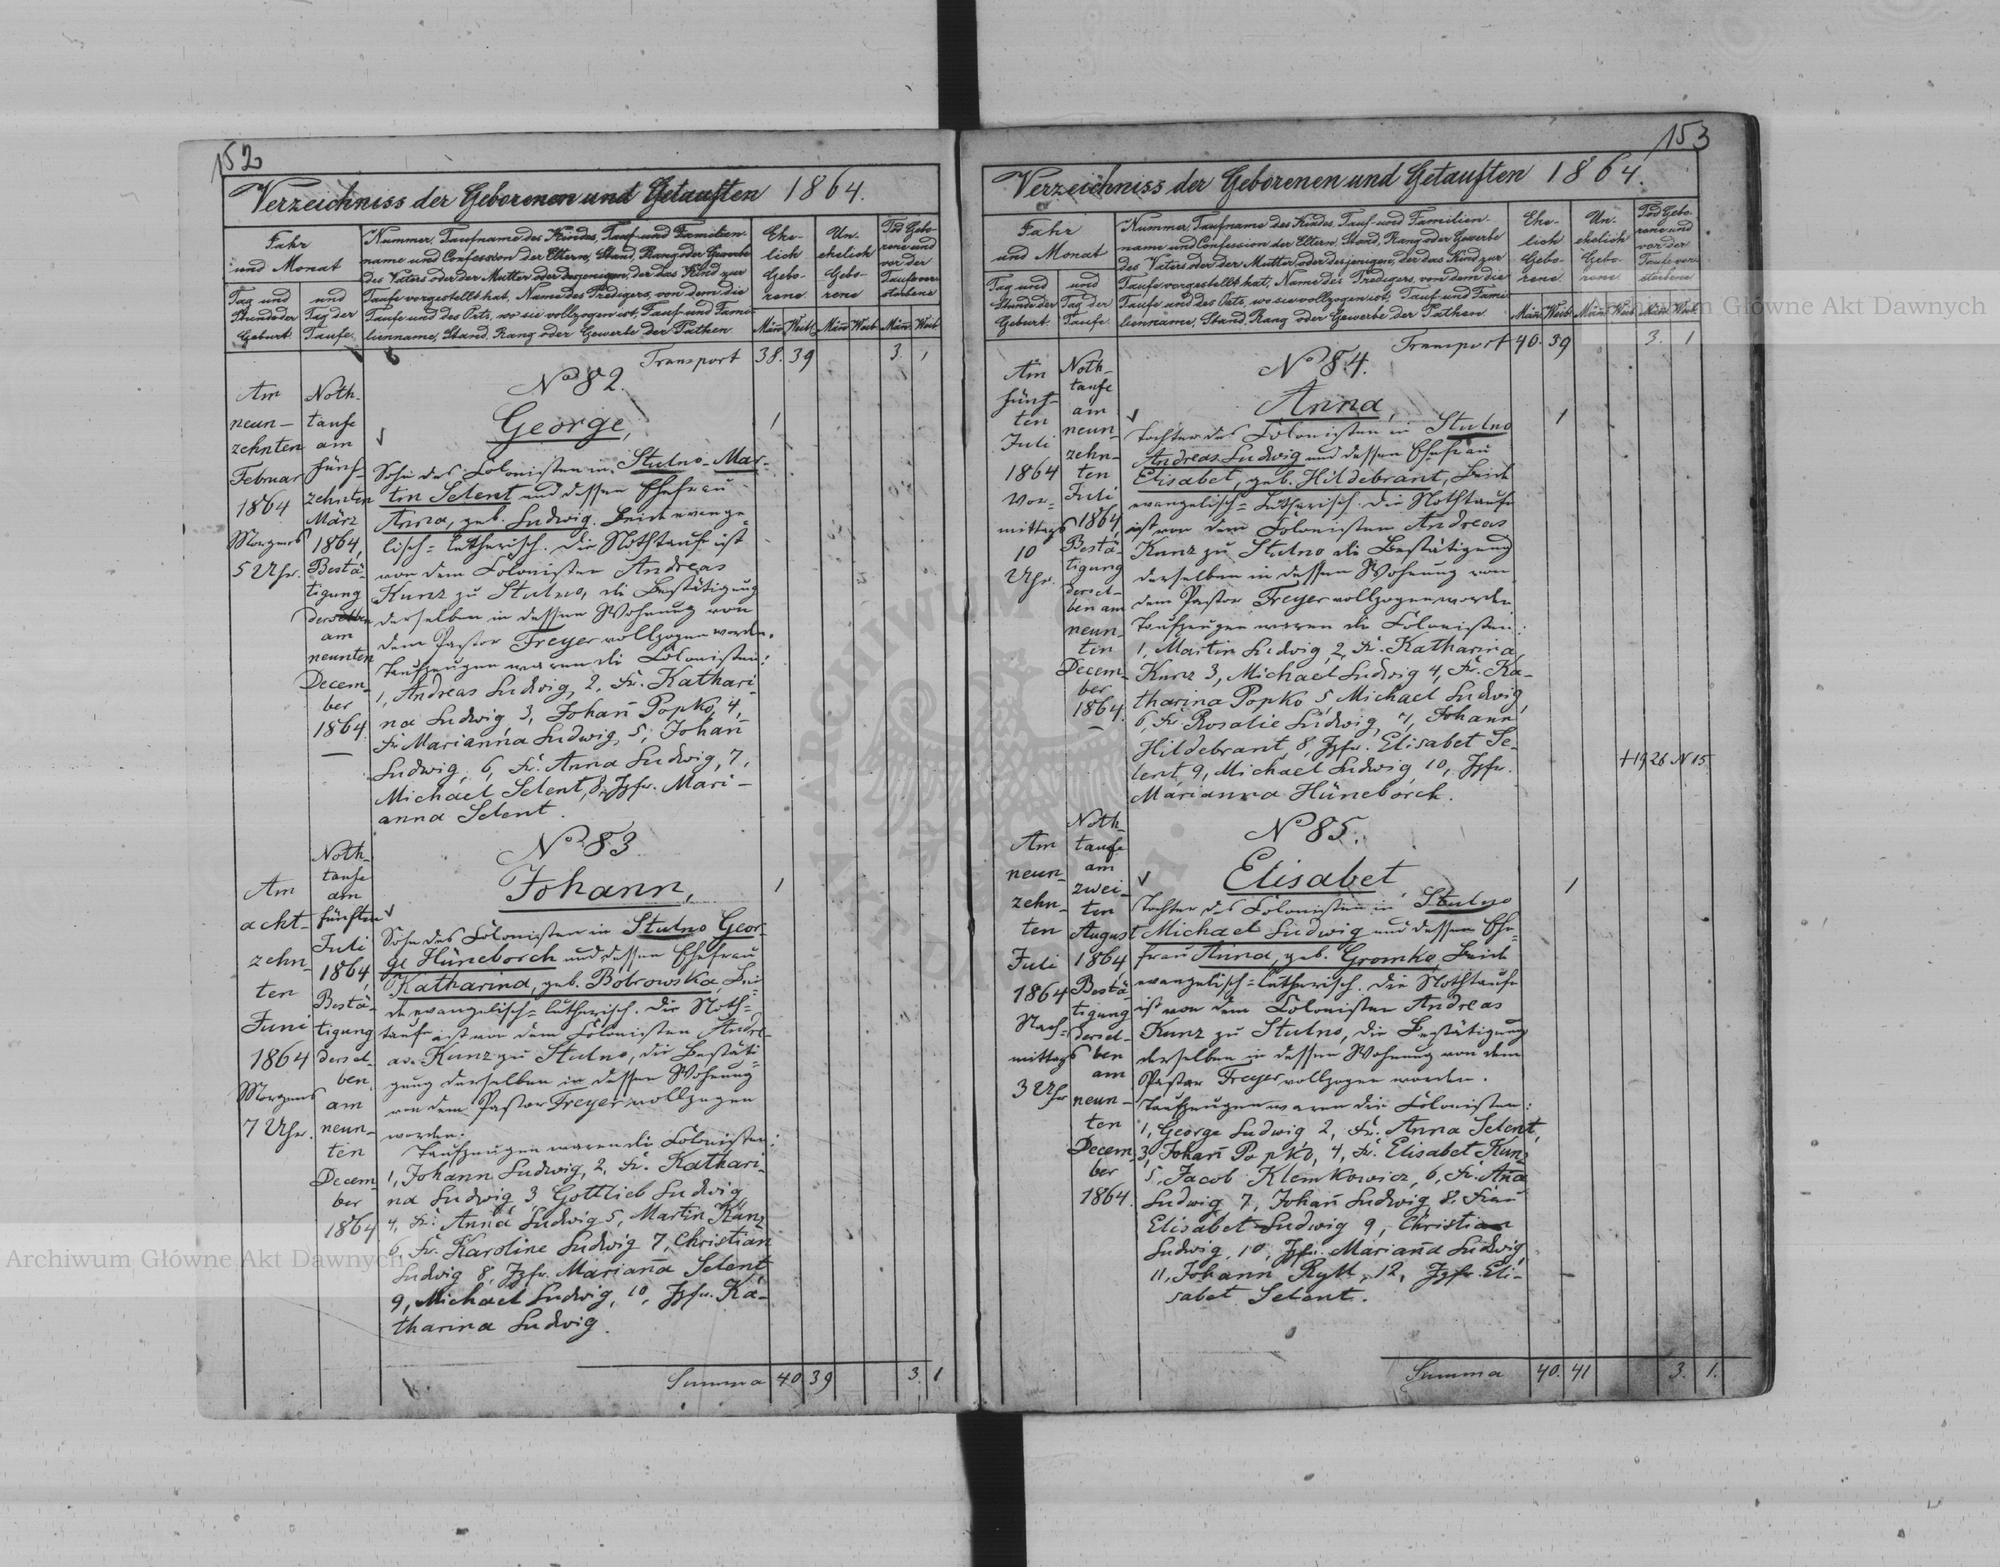 152
Verzeichniss der Geborenen und Getauften 1864.
Jahr
und Monat
Tag und
Stunde der
Geburt.
und
Tag der
Taufe.
Nummer, Taufname des Kindes, Tauf- und Familien-
name und Confession der Eltern, Stand, Rang oder Gewerbe
des Vaters oder der Mutter oder desjenigen, der das Kind zur
Taufe vorgestellt hat, Name des Predigers, von dem die
Taufe und des Orts, wo sie vollzogen ist, Tauf- und Fami-
lienname, Stand, Rang oder Gewerbe der Pathen.
Ehe-
lich
Gebo-
rene
Un-
ehelich
Gebo-
rene
Tod Gebo-
rene und
vor der
Taufe ver-
storbene
Män. Weib. Män. Weib. Män. Weib.
Transport 38. 39 3. 1
Am
neun-
zehnten
Februar
1864
Morgens
5 Uhr.
Noth-
taufe
am
fünf-
zehnten
März
1864,
Bestä-
tigung
derselben
am
neunten
Decem-
ber
1864.
No 82.
George,
1
Sohn des Colonisten in Stulno Mar-
tin Selent und dessen Ehefrau
Anna, geb. Ludwig. Beide evange-
lisch-lutherisch. Die Nothtaufe ist
von dem Colonisten Andreas
Kunz zu Stulno, die Bestätigung
derselben in dessen Wohnung von
dem Pastor Freyer vollzogen worden.
Taufzeugen waren die Colonisten:
1, Andreas Ludwig, 2, Fr. Kathari-
na Ludwig 3, Johan̄ Popko, 4,
Fr. Marianna Ludwig, 5, Johan̄
Ludwig, 6, Fr. Anna Ludwig, 7,
Michael Selent, 8, Jgfr. Mari-
anna Selent.
Am
acht-
zehn-
ten
Juni
1864
Morgens
7 Uhr.
Noth-
taufe
am
fünften
Juli
1864,
Bestä-
tigung
dersel-
ben
am
neun-
ten
Decem-
ber
1864
No 83
Johann,
1
Sohn des Colonisten in Stulno Geor-
ge Hüneborch und dessen Ehefrau
Katharina, geb. Bobrowska, Bei-
de evangelisch-lutherisch. Die Noth-
taufe ist von dem Colonisten Andre-
as Kunz zu Stulno, die Bestäti-
gung derselben in dessen Wohnung
von dem Pastor Freyer vollzogen
worden.
Taufzeugen waren die Colonisten:
1, Johann Ludwig, 2, Fr. Kathari-
na Ludwig 3, Gottlieb Ludwig
4, Fr. Anna Ludwig 5, Martin Kunz
6, Fr. Karoline Ludwig 7, Christian
Ludwig 8, Jgfr. Mariana Selent
9, Michael Ludwig, 10, Jgfr. Ka-
tharina Ludwig.
Summa 40 39 3. 1
153
Verzeichniss der Geborenen und Getauften 1864.
Jahr
und Monat
Tag und
Stunde der
Geburt.
und
Tag der
Taufe
Nummer, Taufname des Kindes, Tauf- und Familien-
name und Confession der Eltern, Stand, Rang oder Gewerbe
des Vaters oder der Mutter oder desjenigen, der das Kind zur
Taufe vorgestellt hat, Name des Predigers, von dem die
Taufe und des Orts, wo sie vollzogen ist, Tauf- und Fami-
lienname, Stand, Rang oder Gewerbe der Pathen.
Ehe-
lich
Gebo-
rene
Un-
ehelich
Gebo-
rene
Tod Gebo-
rene und
vor der
Taufe ver-
storbene
Män. Weib. Män. Weib. Män. Weib.
Transport 40. 39 3. 1
Am
fünf-
ten
Juli
1864
Vor-
mittags
10
Uhr.
Noth-
taufe
am
neun-
zehn-
ten
Juli
1864,
Bestä-
tigung
dersel-
ben am
neun-
ten
Decem-
ber
1864.
No 84.
Anna,
1
Tochter des Colonisten in Stulno
Andreas Ludwig und dessen Ehefrau
Elisabet, geb. Hildebrant, Beide
evangelisch-lutherisch. Die Nothtaufe
ist von dem Colonisten Andreas
Kunz zu Stulno die Bestätigung
derselben in dessen Wohnung von
dem Pastor Freyer vollzogen worden
Taufzeugen waren die Colonisten:
1, Martin Ludwig, 2, Fr. Katharina
Kunz 3, Michael Ludwig 4, Fr. Ka-
tharina Popko 5, Michael Ludwig,
6, Fr. Rosalie Ludwig, 7, Johann
Hildebrant, 8, Jgfr. Elisabet Se-
lent, 9, Michael Ludwig 10, Jgfr.
Marianna Hüneborch.
+1926 N 15
Am
neun-
zehn-
ten
Juli
1864
Nach-
mittags
3 Uhr
Noth-
taufe
am
zwei-
ten
August
1864,
Bestä-
tigung
dersel-
ben
am
neun-
ten
Decem-
ber
1864.
No 85.
Elisabet
1
Tochter des Colonisten in Stulno
Michael Ludwig und dessen Ehe-
frau Anna, geb. Gromko, Beide
evangelisch-lutherisch. Die Nothtaufe
ist von dem Colonisten Andreas
Kunz zu Stulno, die Bestätigung
derselben in dessen Wohnung von dem
Pastor Freyer vollzogen worden.
Taufzeugen waren die Colonisten:
1, George Ludwig 2, Fr. Anna Selent,
3, Johan̄ Popko, 4, Fr. Elisabet Kunz
5, Jacob Klemkowicz, 6, Fr. Ana
Ludwig 7, Johan̄ Ludwig 8, Frau
Elisabet Ludwig 9, Christian
Ludwig, 10, Jgfr. Mariana Ludwig,
11, Johann Rytt, 12, Jgfr. Eli-
sabet Selent.
Summa 40. 41 3. 1.
Archiwum Główne Akt Dawnych
Archiwum Główne Akt Dawnych